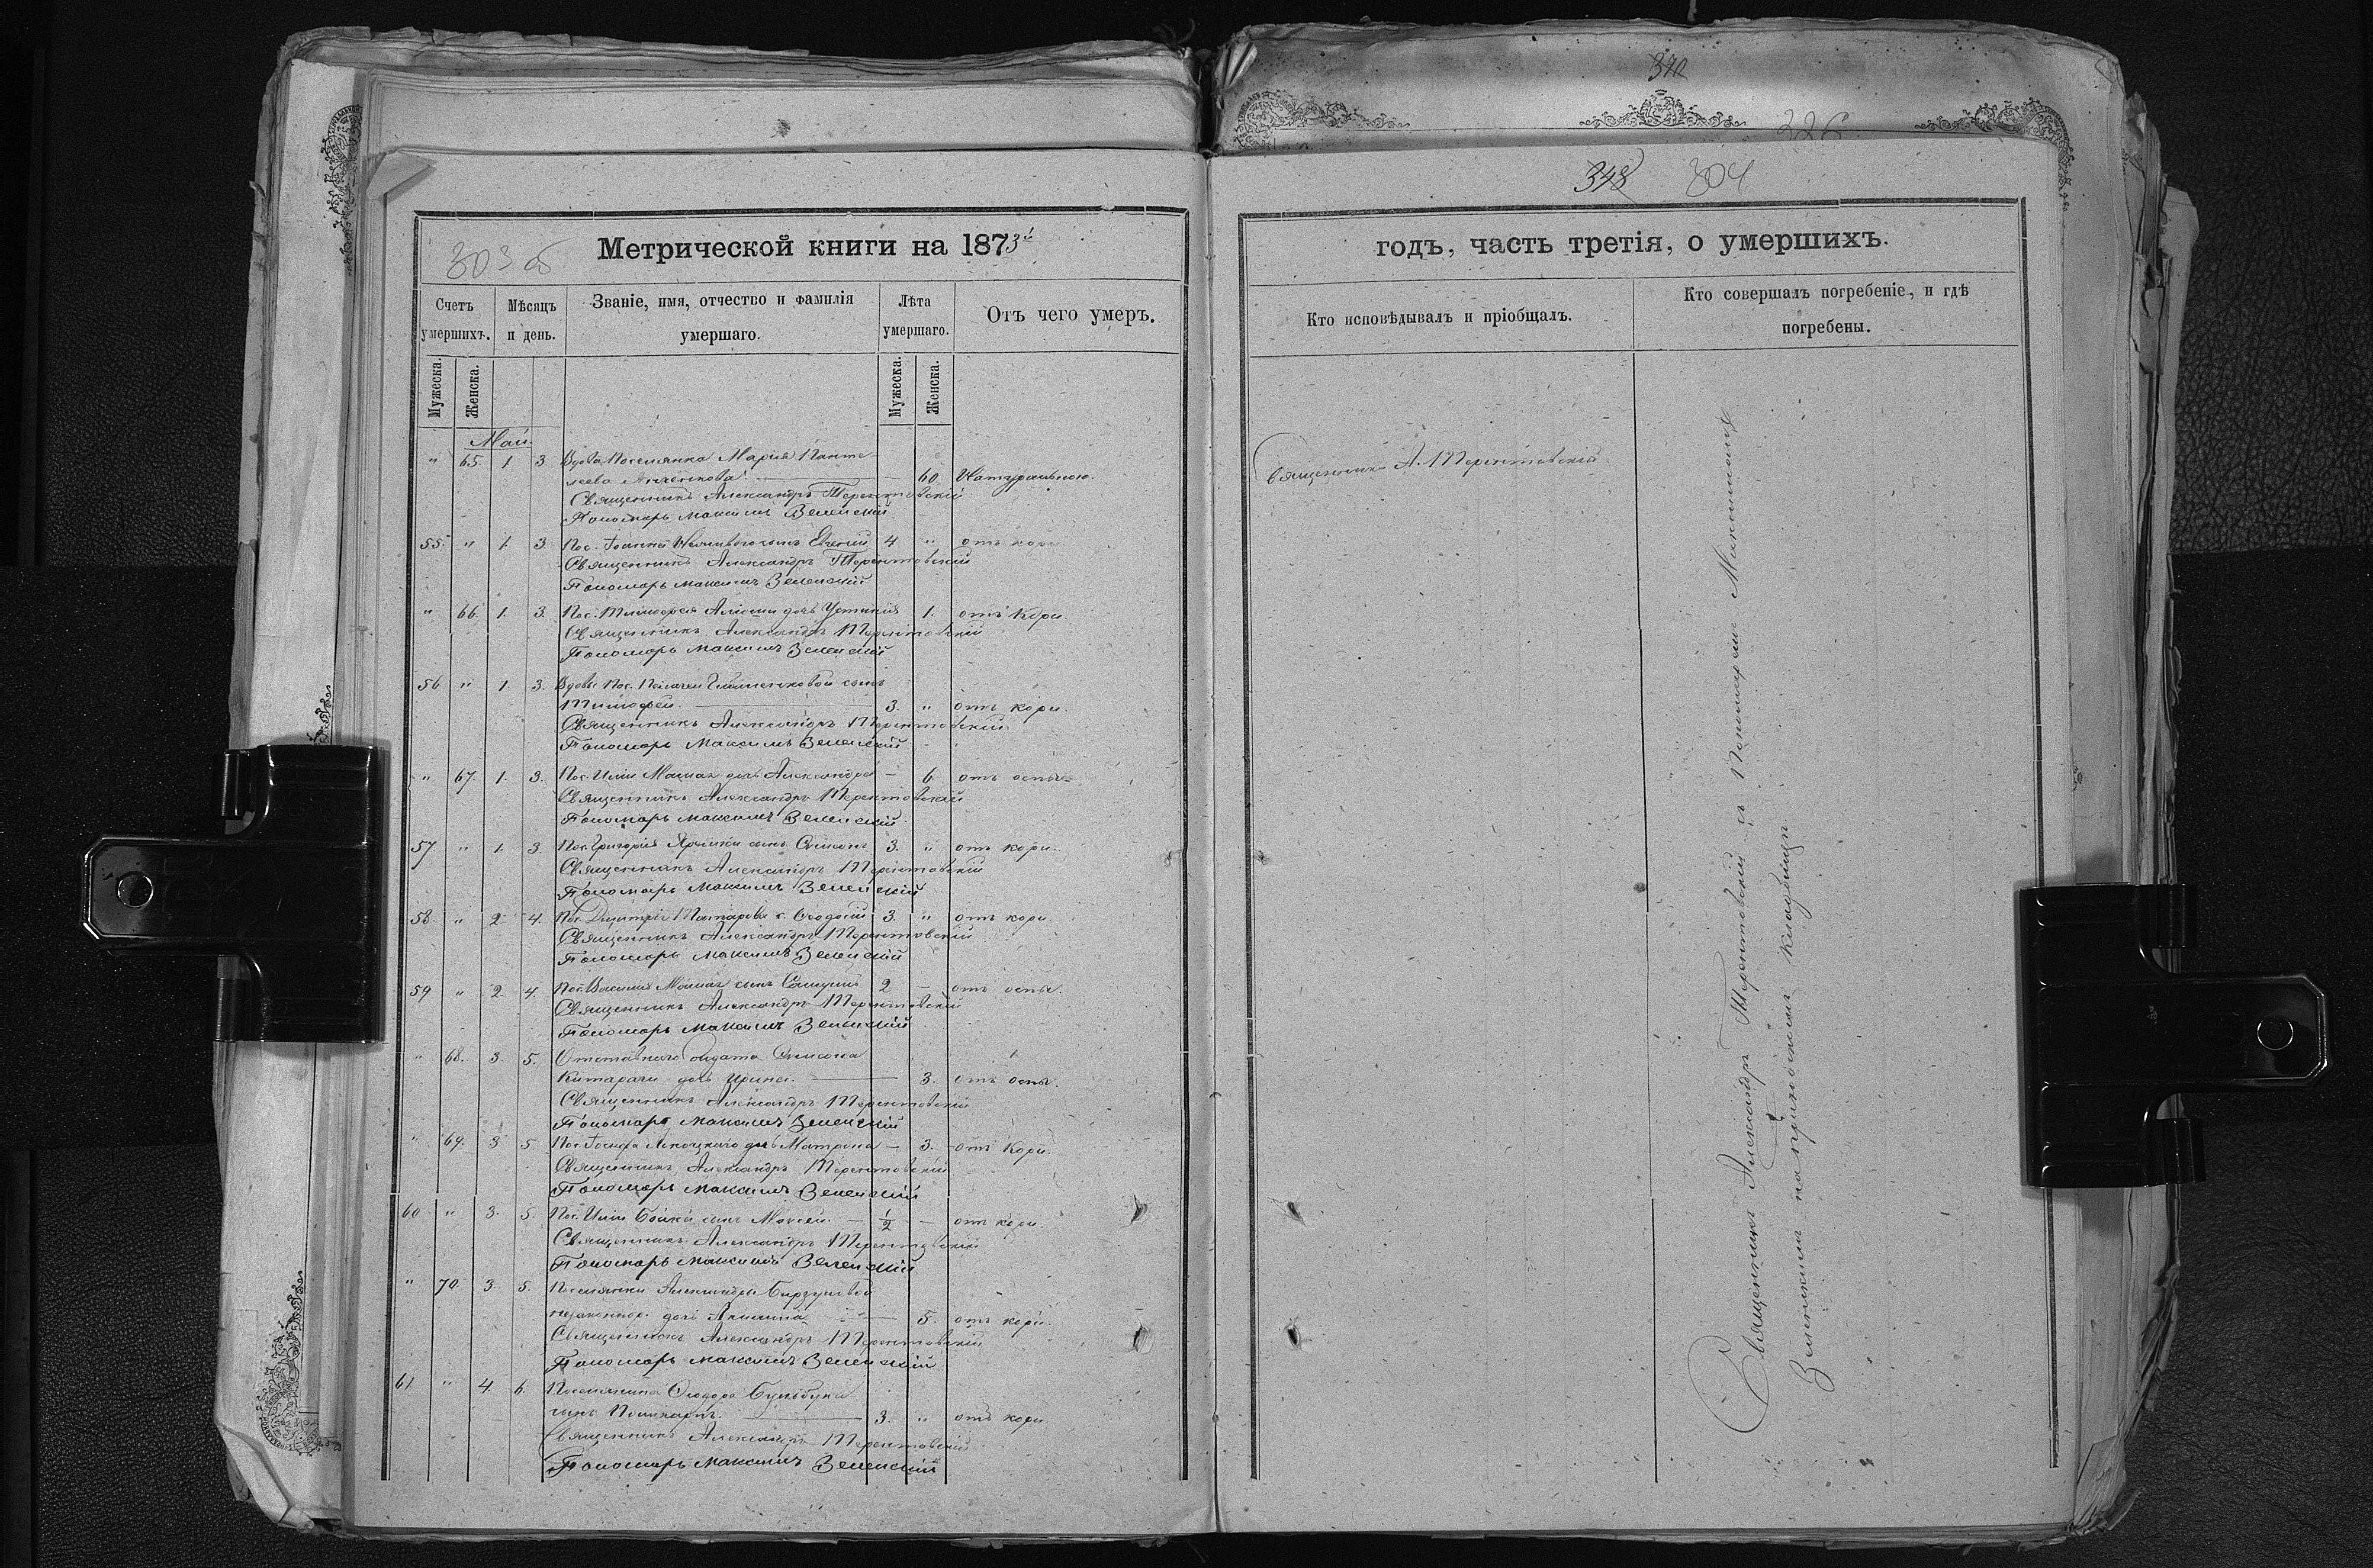 340
326
303 об
Метрической книги на 1873й
Счетъ умершихъ.
Мѣсяцъ и день.
Званіе, имя, отчество и фамилія умершаго.
Лѣта умершаго.
Отъ чего умеръ.
Мужеска.
Женска.
Мужеска.
Женска.
Май.
" 65. 1. 3. Вдова Поселянка Марія Панте-
леева — 60. Натуральною.
Священникъ Александръ Терентовскій
Пономарь Максимъ Зеленский
55. " 1. 3. Пос. сынъ Евгений 4 " отъ кори
Священникъ Александръ Терентовскій
Пономарь Максимъ Зеленский
" 66. 1. 3. Пос. Тимофея дочь Устинія 1. отъ Кори.
Священникъ Александръ Терентовскій
Пономарь Максимъ Зеленский
56 " 1. 3. Вдовы Пос. сынъ
Тимофей. — 3. " отъ кори.
Священникъ Александръ Терентовскій
Пономарь Максимъ Зеленский
" 67. 1. 3. Пос. Иліи дочь Александра — 6. отъ оспы
Священникъ Александръ Терентовскій
Пономарь Максимъ Зеленский
57 " 1. 3. Пос. Григорія сынъ Симеонъ 3. " отъ кори.
Священникъ Александръ Терентовскій
Пономарь Максимъ Зеленский
58. " 2. 4. Пос. Димитрія с. Ѳеодосій 3. " отъ кори
Священникъ Александръ Терентовскій
Пономарь Максимъ Зеленский
59 " 2. 4. Пос. Василія сынъ Самуилъ 2 — отъ оспы.
Священникъ Александръ Терентовскій
Пономарь Максимъ Зеленский
" 68. 3. 5. Отставнаго Солдата
дочь Ирина. — 3. отъ оспы.
Священникъ Александръ Терентовскій
Пономарь Максимъ Зеленский
" 69. 3. 5. Пос. Іосифа дочь Матрона — 3. отъ Кори.
Священникъ Александръ Терентовскій
Пономарь Максимъ Зеленский
60 " 3. 5. Пос. Иліи Бойка сынъ Моисей. — 1/2 — отъ кори.
Священникъ Александръ Терентовскій
Пономарь Максимъ Зеленский
" 70. 3. 5. Поселянки Александры
незаконнор. дочь Акилина — 5. отъ кори.
Священникъ Александръ Терентовскій
Пономарь Максимъ Зеленский
61. " 4. 6. Поселянина Ѳеодора
сынъ Поликарпъ. — 3. " отъ кори
Священникъ Александръ Терентовскій
Пономарь Максимъ Зеленский
348 304
годъ, часть третія, о умершихъ.
Кто исповѣдывалъ и пріобщалъ.
Кто совершалъ погребеніе, и гдѣ погребены.
Священникъ А. Терентовскій
Священникъ Александръ Терентовскій съ Пономаремъ Максимомъ
Зеленскимъ на приходскомъ кладбищѣ.